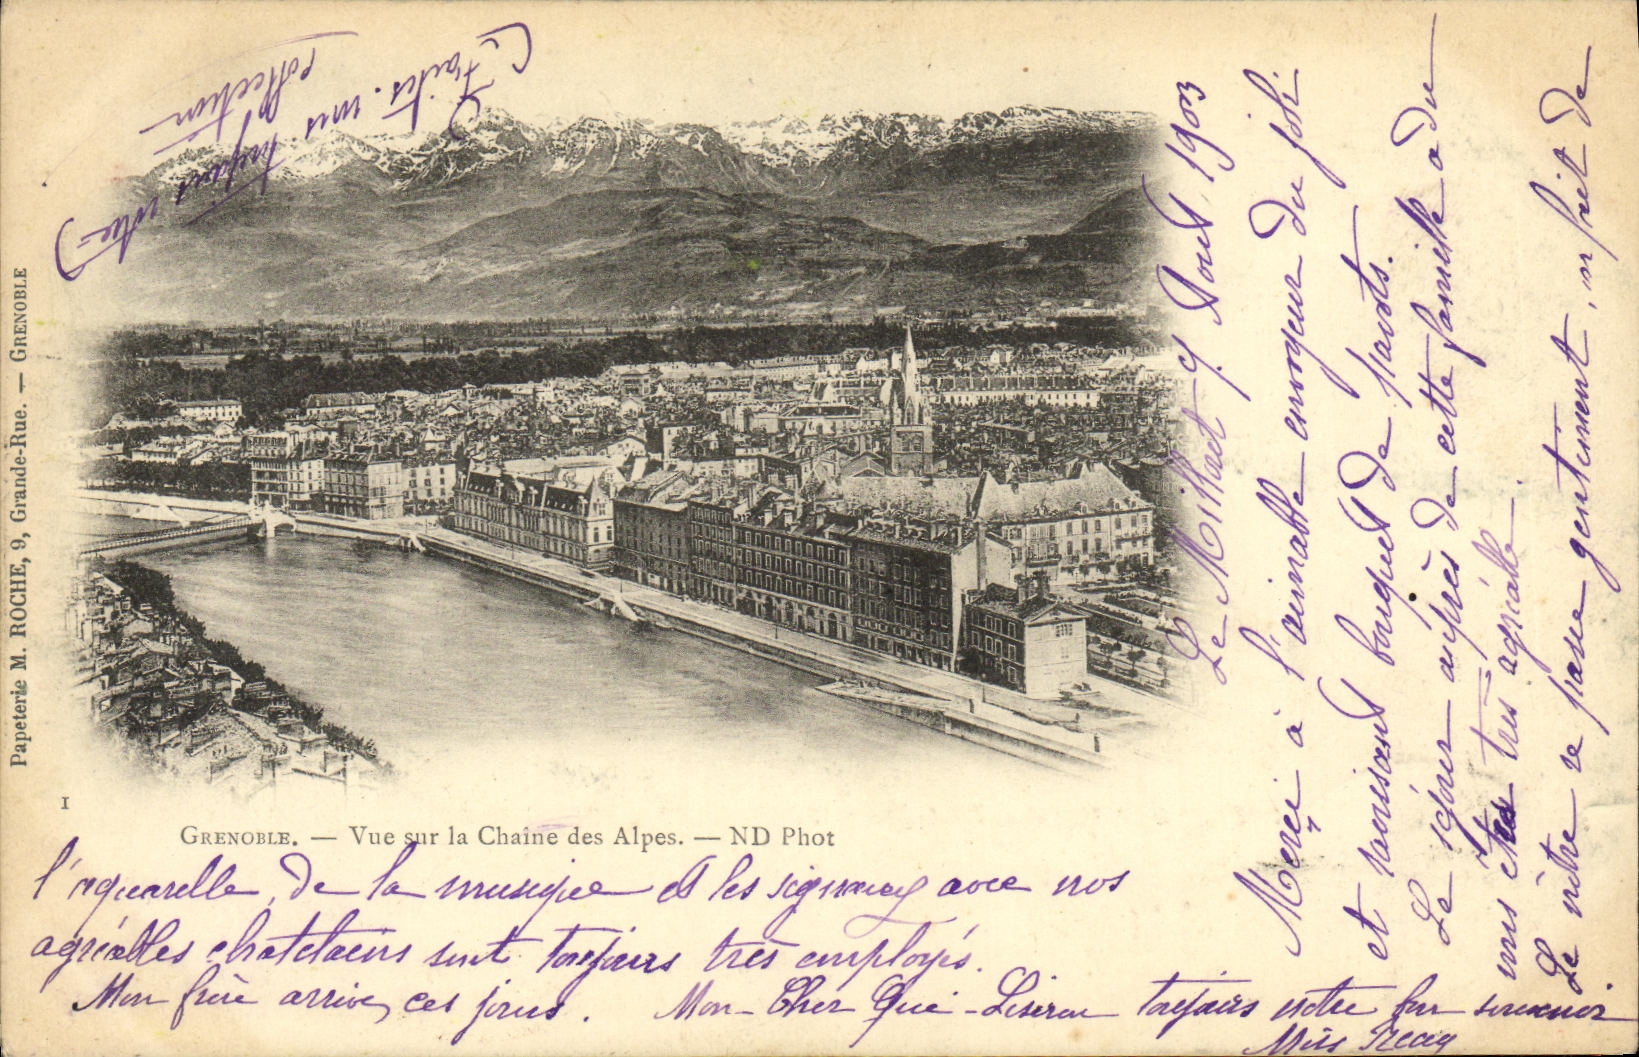 Papeterie M. ROCHE, 9, Grande-Rue. — GRENOBLE
1
GRENOBLE. — Vue sur la Chaîne des Alpes. — ND Phot
Le Milhet 9 Aout, 1903
Merci à l'aimable envoyeur du joli
et ravissant bouquet de
Le séjour auprès de cette famille a du
vous être très agréable.
Le nôtre se passe gentiment, on fait de
l'aquarelle, de la musique et les avec nos
agréables chatelains sont toujours très employés.
Mon frère arrive, ces jours. Mon-Cher Qui-Lisera toujours votre bon souvenir
Miss
(Faites-vous toujours votre
collection